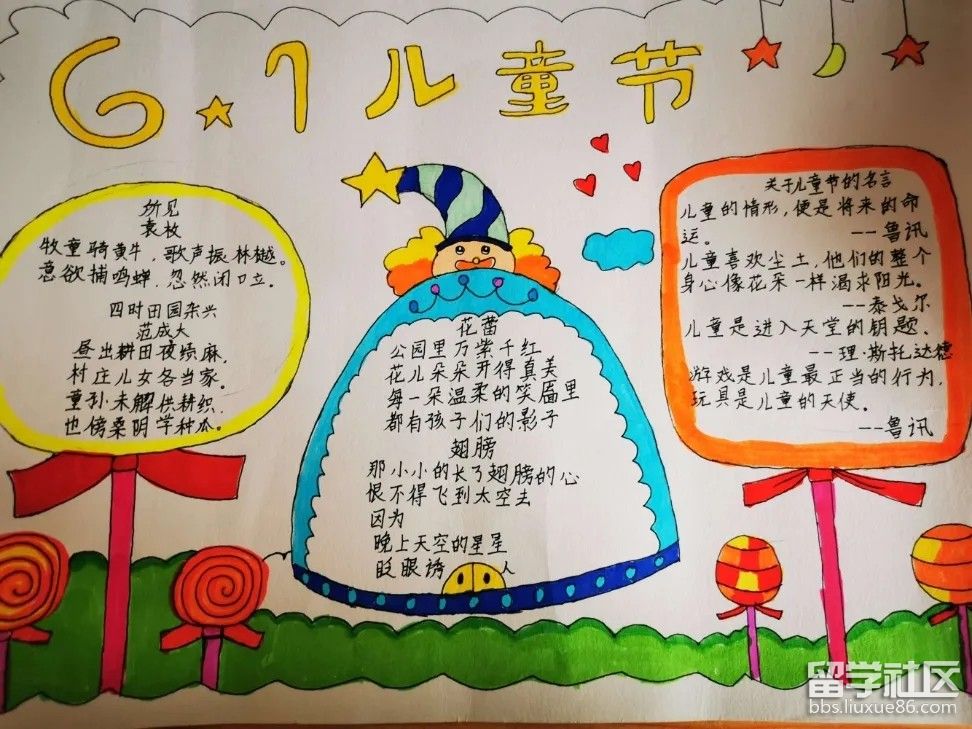 6.1儿童节
所见
袁枚
牧童骑黄牛，歌声振林樾。
意欲捕鸣蝉，忽然闭口立。
四时田园杂兴
范成大
昼出耕田夜绩麻，
村庄儿女各当家。
童孙未解供耕织，
也傍桑阴学种瓜。
花蕾
公园里万紫千红
花儿朵朵开得真美
每一朵温柔的笑厴里
都有孩子们的影子
翅膀
那小小的长了翅膀的心
恨不得飞到太空去
因为
晚上天空的星星
眨眼诱人
关于儿童节的名言
儿童的情形，便是将来的命
运。 --鲁讯
儿童喜欢尘土，他们的整个
身心像花朵一样渴求阳光。
--泰戈尔
儿童是进入天堂的钥题．
--理·斯托达德
游戏是儿童最正当的行为，
玩具是儿童的天使。
--鲁讯
留学社区
bbs.liuxue86.com